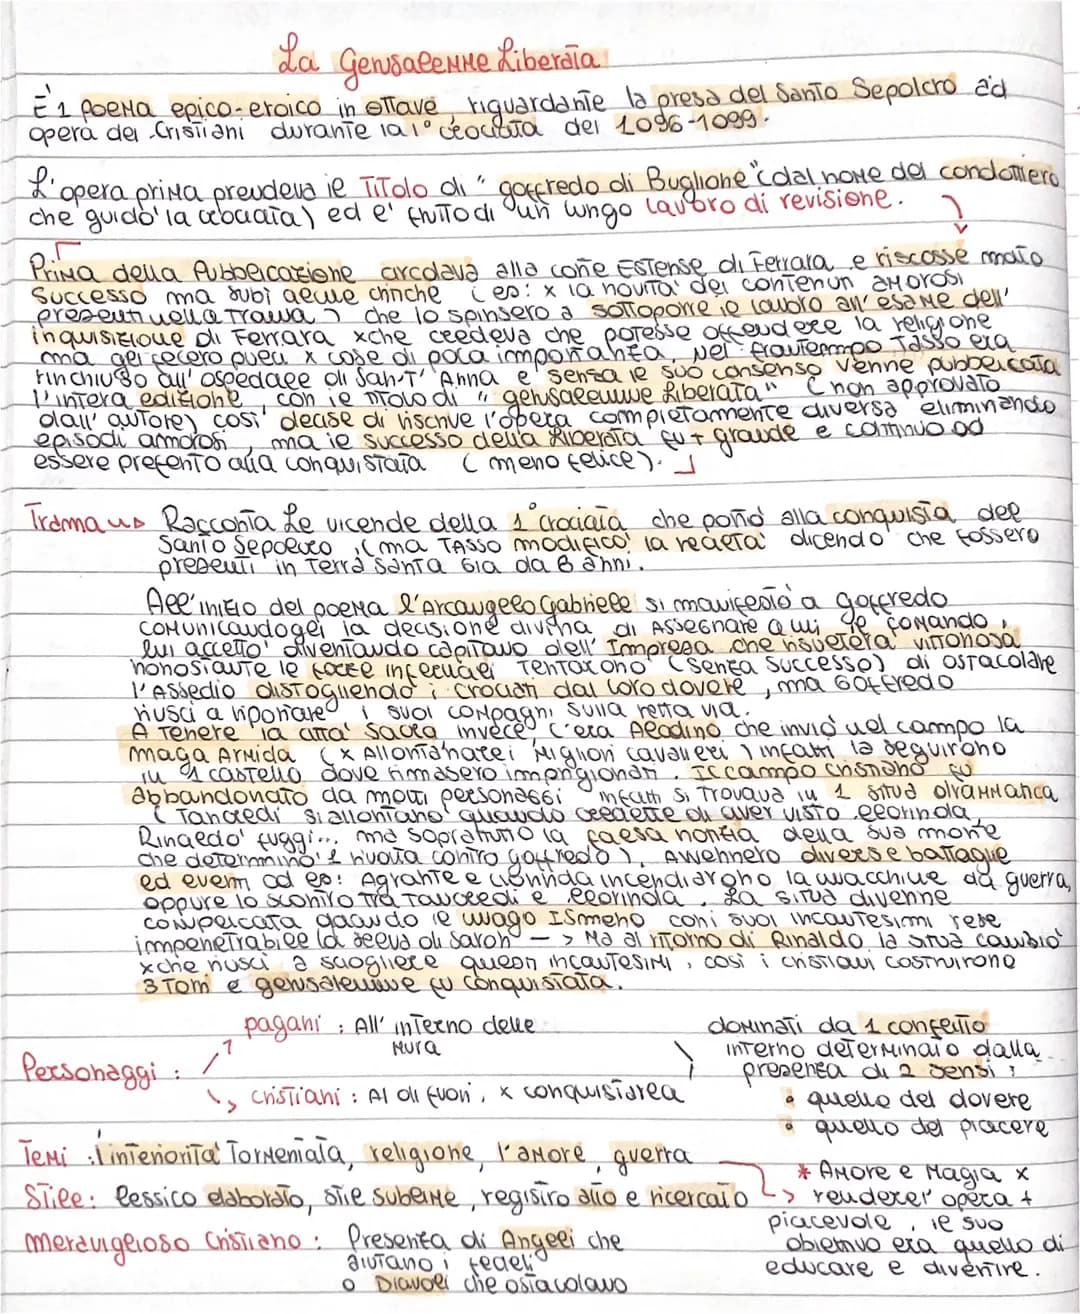 La Gerusalemme Liberata
È 1 poema epico-eroico in ottave riguardante la presa del Santo Sepolcro ad
opera dei Cristiani durante la 1° crociata del 1096-1099.
L'opera prima prendeva il Titolo di "goffredo di Buglione" (dal nome del condottiero
che guidò la crociata) ed e' frutto di un lungo lavoro di revisione.
Prima della Pubblicazione circolava alla corte Estense di Ferrara e riscosse molto
successo ma subì alcune critiche (es: x la novità dei contenuti amorosi
presenti nella trama) che lo spinsero a sottoporre il lavoro all'esame dell'
inquisizione di Ferrara xche credeva che potesse offendere la religione
ma gli fecero pveu x cose di poca importanza. Nel frattempo Tasso era
rinchiuso all'ospedale di San-T'Anna e senza il suo consenso venne pubblicata
l'intera edizione con il titolo di "gerusalemme Liberata" (non approvato
dall'autore) così decise di riscrive l'opera completamente diversa eliminando
episodi amorosi, ma il successo della Liberata fu + grande e continuo ad
essere preferito alla conquistata (meno felice).
Trama Racconta Le vicende della 1° crociata che portò alla conquista del
Santo Sepolcro, (ma Tasso modificò la realtà dicendo che fossero
presenti in Terra Santa Gia da 6 anni.
All'inizio del poema l'Arcangelo Gabriele si manifestò a goffredo
comunicandogli la decisione divina di Assegnare a lui il comando,
lui accettò diventando capitano dell'Impresa che risulterà vittoriosa
nonostante le forze infernali tentarono (senza successo) di ostacolare
l'Assedio distogliendo i crociati dal loro dovere, ma Goffredo
riuscì a riportare i suoi compagni sulla retta via.
A Tenere la città Sacra invece, c'era Aladino che inviò nel campo la
maga Armida (x Allontanare i Migliori cavalieri) infatti la seguirono
in 1 castello dove rimasero imprigionati. Il campo cristiano fu
abbandonato da molti personaggi infatti si trovava in 1 situa drammatica
(Tancredi si allontanò quando credette di aver visto Clorinda,
Rinaldo fuggì... ma sopratutto la falsa notizia della sua morte
che determinò 1 rivolta contro goffredo). Avvennero diverse battaglie
ed eventi ad es: Agrante e clorinda incendiarono la macchine da guerra,
oppure lo scontro tra Tancredi e Clorinda. La situa divenne
complicata quando il mago Ismeno con i suoi incantesimi rese
impenetrabile la selva di Saron -> Ma al ritorno di Rinaldo la situa cambiò
xche riuscì a sciogliere questi incantesimi, così i cristiani costruirono
3 Torri e gerusalemme fu conquistata.
Personaggi:
pagani: All'interno delle
Mura
cristiani: Al di fuori, x conquistarea
dominati da 1 conflitto
interno determinato dalla
presenza di 2 sensi:
• quello del dovere
• quello del piacere
Temi: l'interiorità Tormentata, religione, l'amore, guerra
Stile: lessico elaborato, stile sublime, registro alto e ricercato
* Amore e Magia x
rendere l'opera +
piacevole, il suo
obiettivo era quello di
educare e divertire.
meraviglioso Cristiano: Presenza di Angeli che
aiutano i fedeli
o Diavoli che ostacolano